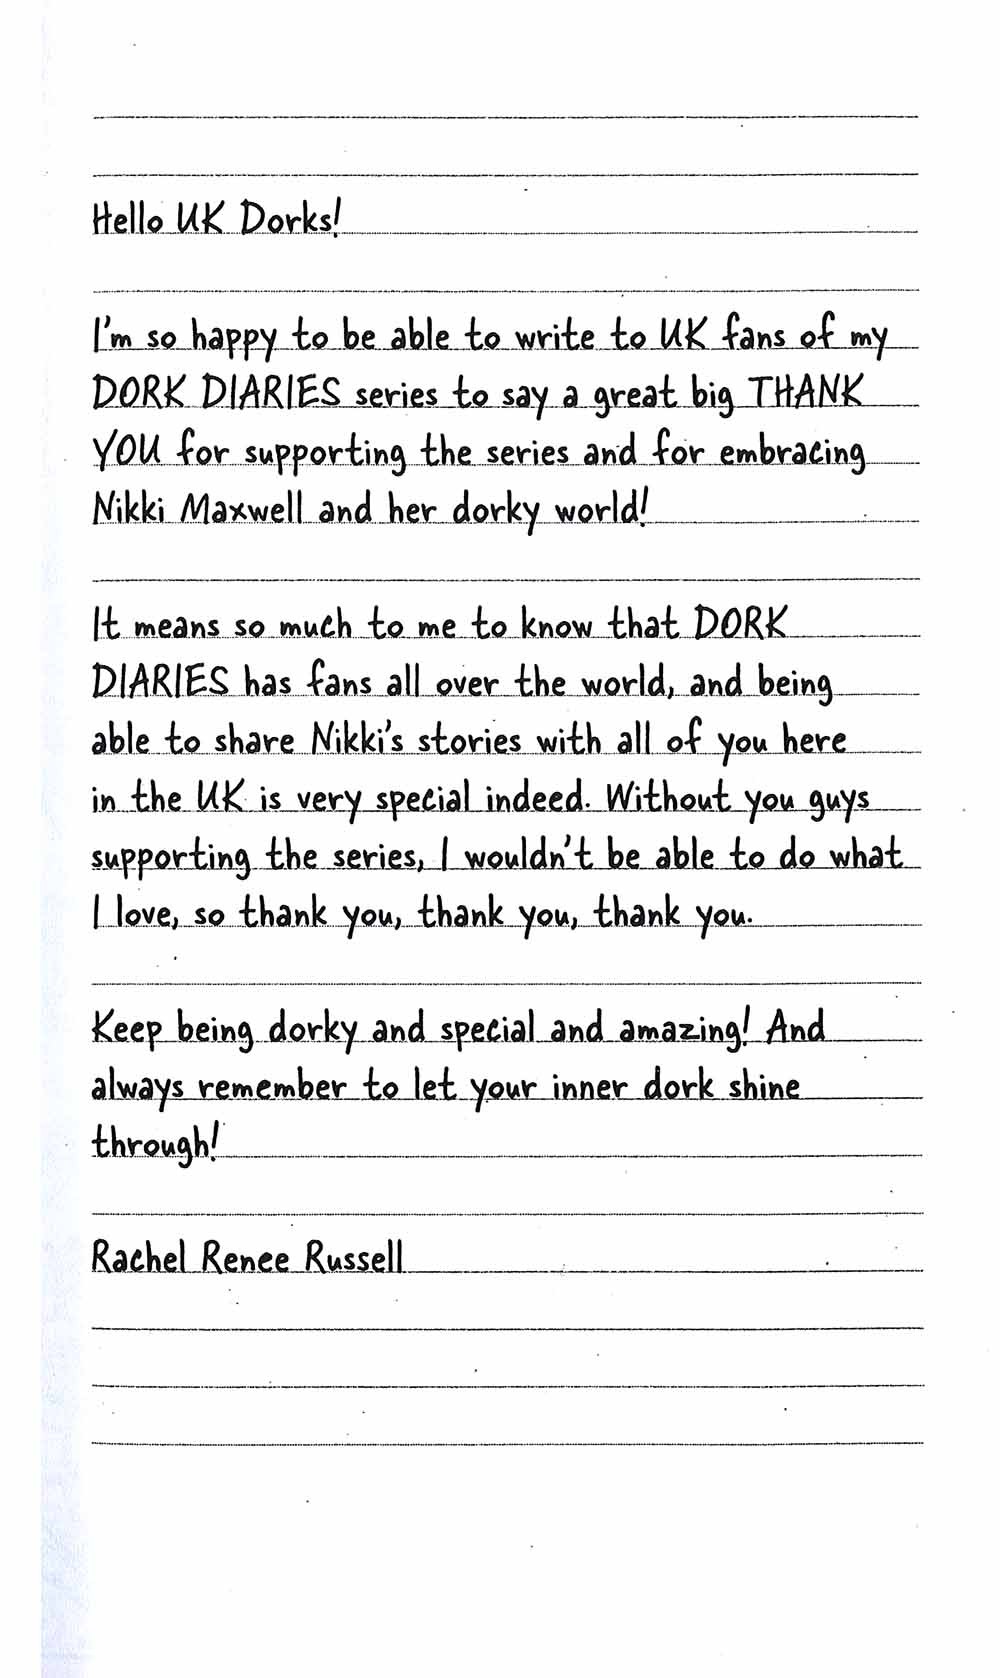 Hello UK Dorks!
I'm so happy to be able to write to UK fans of my
DORK DIARIES series to say a great big THANK
YOU for supporting the series and for embracing
Nikki Maxwell and her dorky world!
It means so much to me to know that DORK
DIARIES has fans all over the world, and being
able to share Nikki's stories with all of you here
in the UK is very special indeed. Without you guys
supporting the series, I wouldn't be able to do what
I love, so thank you, thank you, thank you.
Keep being dorky and special and amazing! And
always remember to let your inner dork shine
through!
Rachel Renee Russell